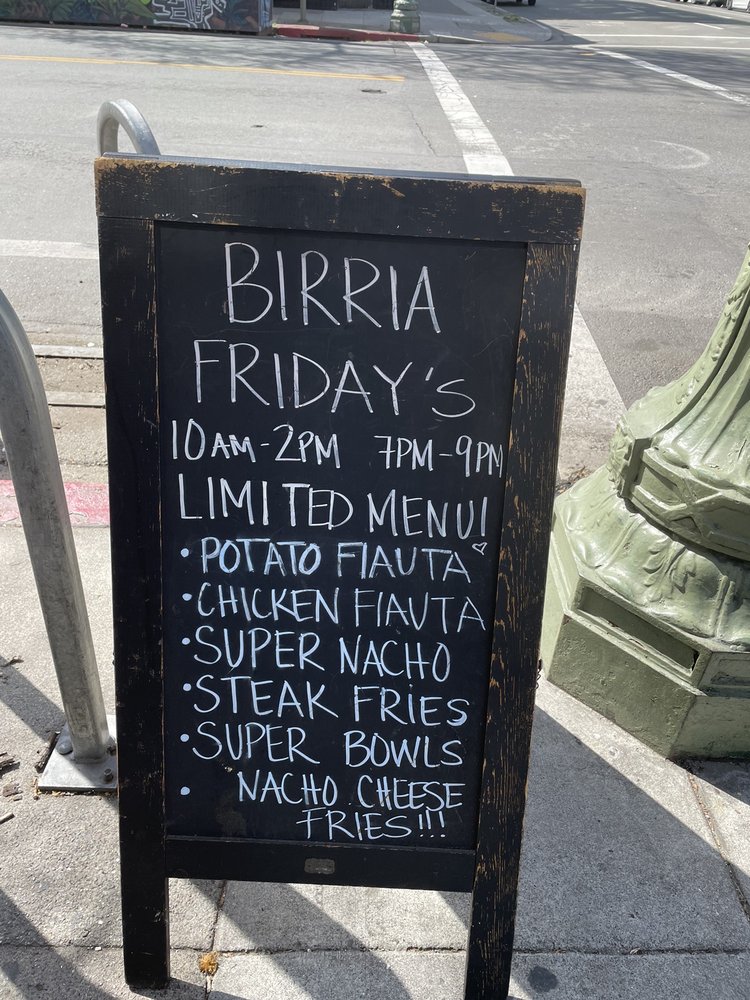 BIRRIA
FRIDAY'S
10AM-2PM 7PM-9PM
LIMITED MENU!
• POTATO FlAUTA
• CHICKEN FlAUTA
• SUPER NACHO
• STEAK FRiES
• SUPER BOWLS
• NACHO CHEESE
FRIES!!!